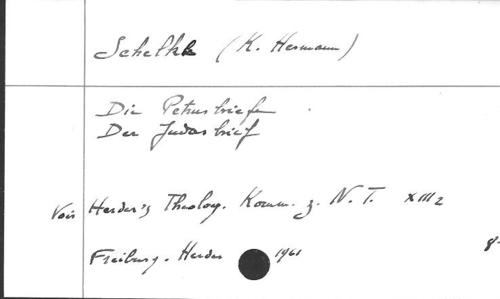 Schelkle (K. Hermann)
Die Petrusbriefe
Der Judasbrief
Voir Herder's Theolog. Komm. z. N. T. XIII 2
Freiburg. Herder 1961
8°